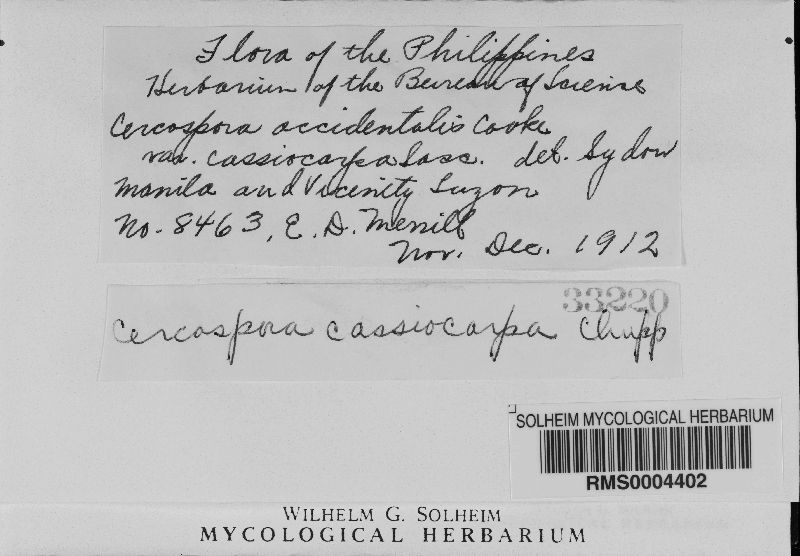 Flora of the Philippines
Herbarium of the Bureau of Science
Cercospora occidentalis Cooke
var. cassiocarpa Sacc. det. Sydow
Manila and Vicinity Luzon
No. 8463, E. D. Merrill
Nov. Dec. 1912
33220
Cercospora cassiocarpa Chupp
SOLHEIM MYCOLOGICAL HERBARIUM
RMS0004402
WILHELM G. SOLHEIM
MYCOLOGICAL HERBARIUM